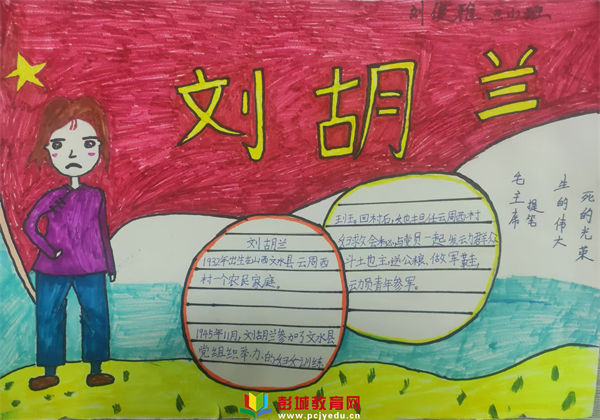 刘
刘胡兰
毛主席
提笔
生的伟大
死的光荣
刘胡兰
1932年出生在山西文水县云周西
村一个农民家庭。
1945年11月，刘胡兰参加了文水县
党组织举办的妇女训练
班。回村后，她担任云周西村
妇救会秘书，与党员一起发动群众
斗地主，送公粮，做军鞋，
动员青年参军。
彭城教育网
www.pcjyedu.cn